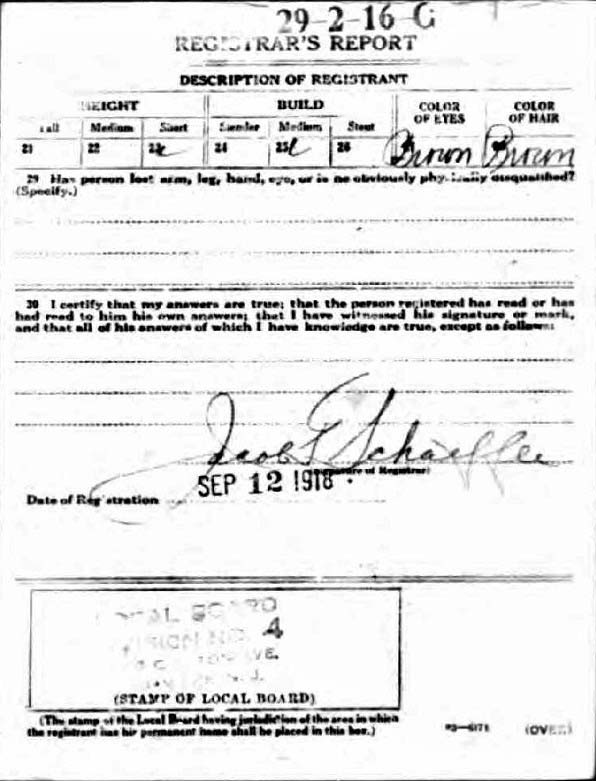 29-2-16-G
REGISTRAR'S REPORT
DESCRIPTION OF REGISTRANT
HEIGHT BUILD COLOR OF EYES COLOR OF HAIR
Tall Medium Short Slender Medium Stout
21 22 23 24 25 26 Brown Brown
29 Has person lost arm, leg, hand, eye, or is he obviously physically disqualified?
(Specify.)
30 I certify that my answers are true; that the person registered has read or has
had read to him his own answers; that I have witnessed his signature or mark,
and that all of his answers of which I have knowledge are true, except as follows:
Jacob Schaeffer
(Signature of Registrar)
Date of Registration SEP 12 1918
LOCAL BOARD
DIVISION NO. 4
AVE.
N. J.
(STAMP OF LOCAL BOARD)
(The stamp of the Local Board having jurisdiction of the area in which
the registrant has his permanent home shall be placed in this box.)
(OVER)